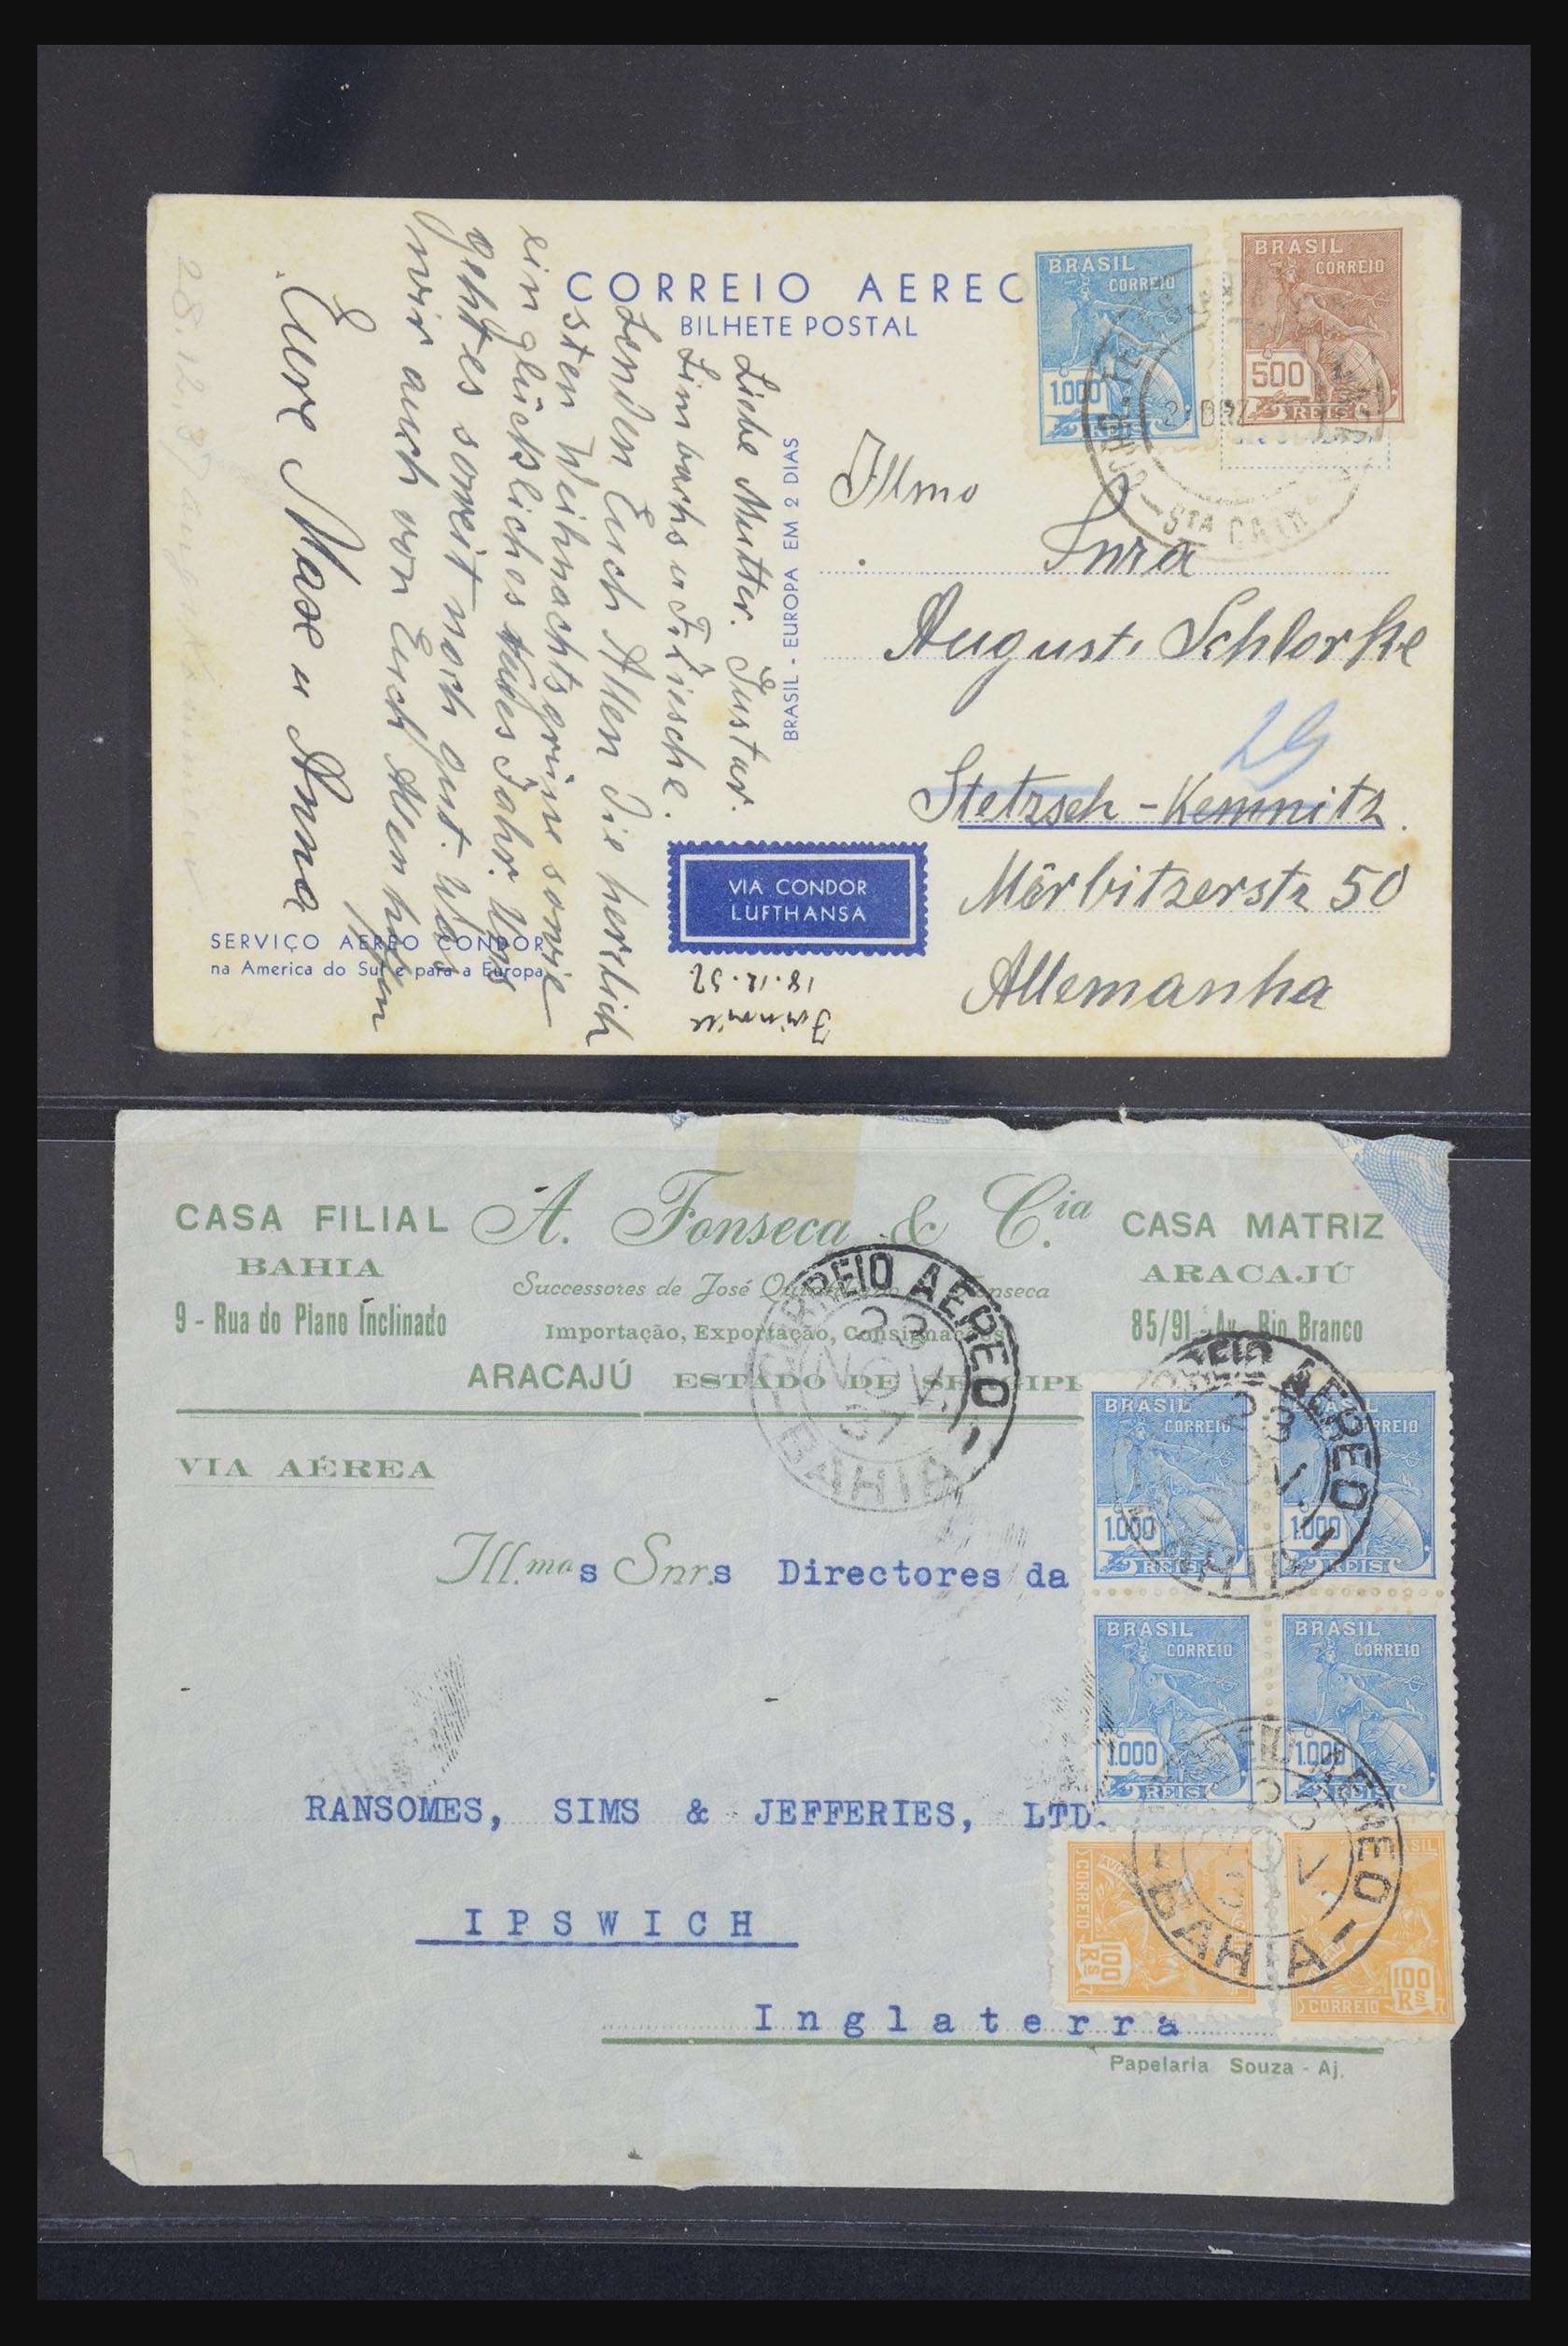 CORREIO AEREO
BILHETE POSTAL
BRASIL
CORREIO
1.000
REIS
BRASIL
CORREIO
500
REIS
STA CATH
Illmo
Snra
August. Schlorke
29
Stetzsch - Kemnitz.
Mörbitzerstr 50
Allemanha
BRASIL - EUROPA EM 2 DIAS
Liebe Mutter. Gustav.
Limbachs u. Fritzsche.
Senden Euch Allen Die herzlich
sten Weihnachtsgrüsse sowie
ein glückliches neues Jahr. Uns
geht es soweit noch gut. Was
wir auch von Euch Allen hoffen
Eure Maxe u Anna
28.12.37
VIA CONDOR
LUFTHANSA
18.12.37
SERVIÇO AEREO CONDOR
na America do Sul e para a Europa
CASA FILIAL
BAHIA
9 - Rua do Plano Inclinado
A. Fonseca & Cia.
Successores de José
Importação, Exportação, Consignações
ARACAJÚ ESTADO DE SERGIPE
CASA MATRIZ
ARACAJÚ
85/91 - Av. Rio Branco
VIA AÉREA
CORREIO AEREO
23
NOV.
37
BAHIA
BRASIL
CORREIO
1.000
REIS
BRASIL
CORREIO
1.000
REIS
CORREIO AEREO
23
BAHIA
Ill.mos Snr.s Directores da
BRASIL
CORREIO
1.000
REIS
BRASIL
CORREIO
1.000
REIS
RANSOMES, SIMS & JEFFERIES, LTD.
CORREIO AEREO
BAHIA
CORREIO
100
Rs
BRASIL
100
Rs
CORREIO
IPSWICH
Inglaterra
Papelaria Souza - Aj.